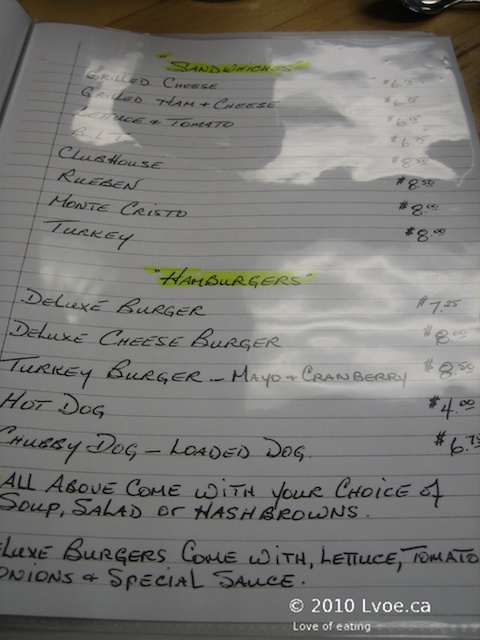 "SANDWHICHES"
GRILLED CHEESE
GRILLED HAM + CHEESE
LETTUCE & TOMATO
B.L.T
CLUBHOUSE
RUEBEN $8.50
MONTE CRISTO $8.00
TURKEY $8.00
"HAMBURGERS"
DELUXE BURGER $7.25
DELUXE CHEESE BURGER $8.00
TURKEY BURGER - MAYO + CRANBERRY $8.50
HOT DOG $4.00
CHUBBY DOG - LOADED DOG. $6.75
ALL ABOVE COME WITH YOUR CHOICE of
SOUP, SALAD or HASHBROWNS.
ELUXE BURGERS COME WITH, LETTUCE, TOMATO
ONIONS & SPECIAL SAUCE.
© 2010 Lvoe.ca
Love of eating